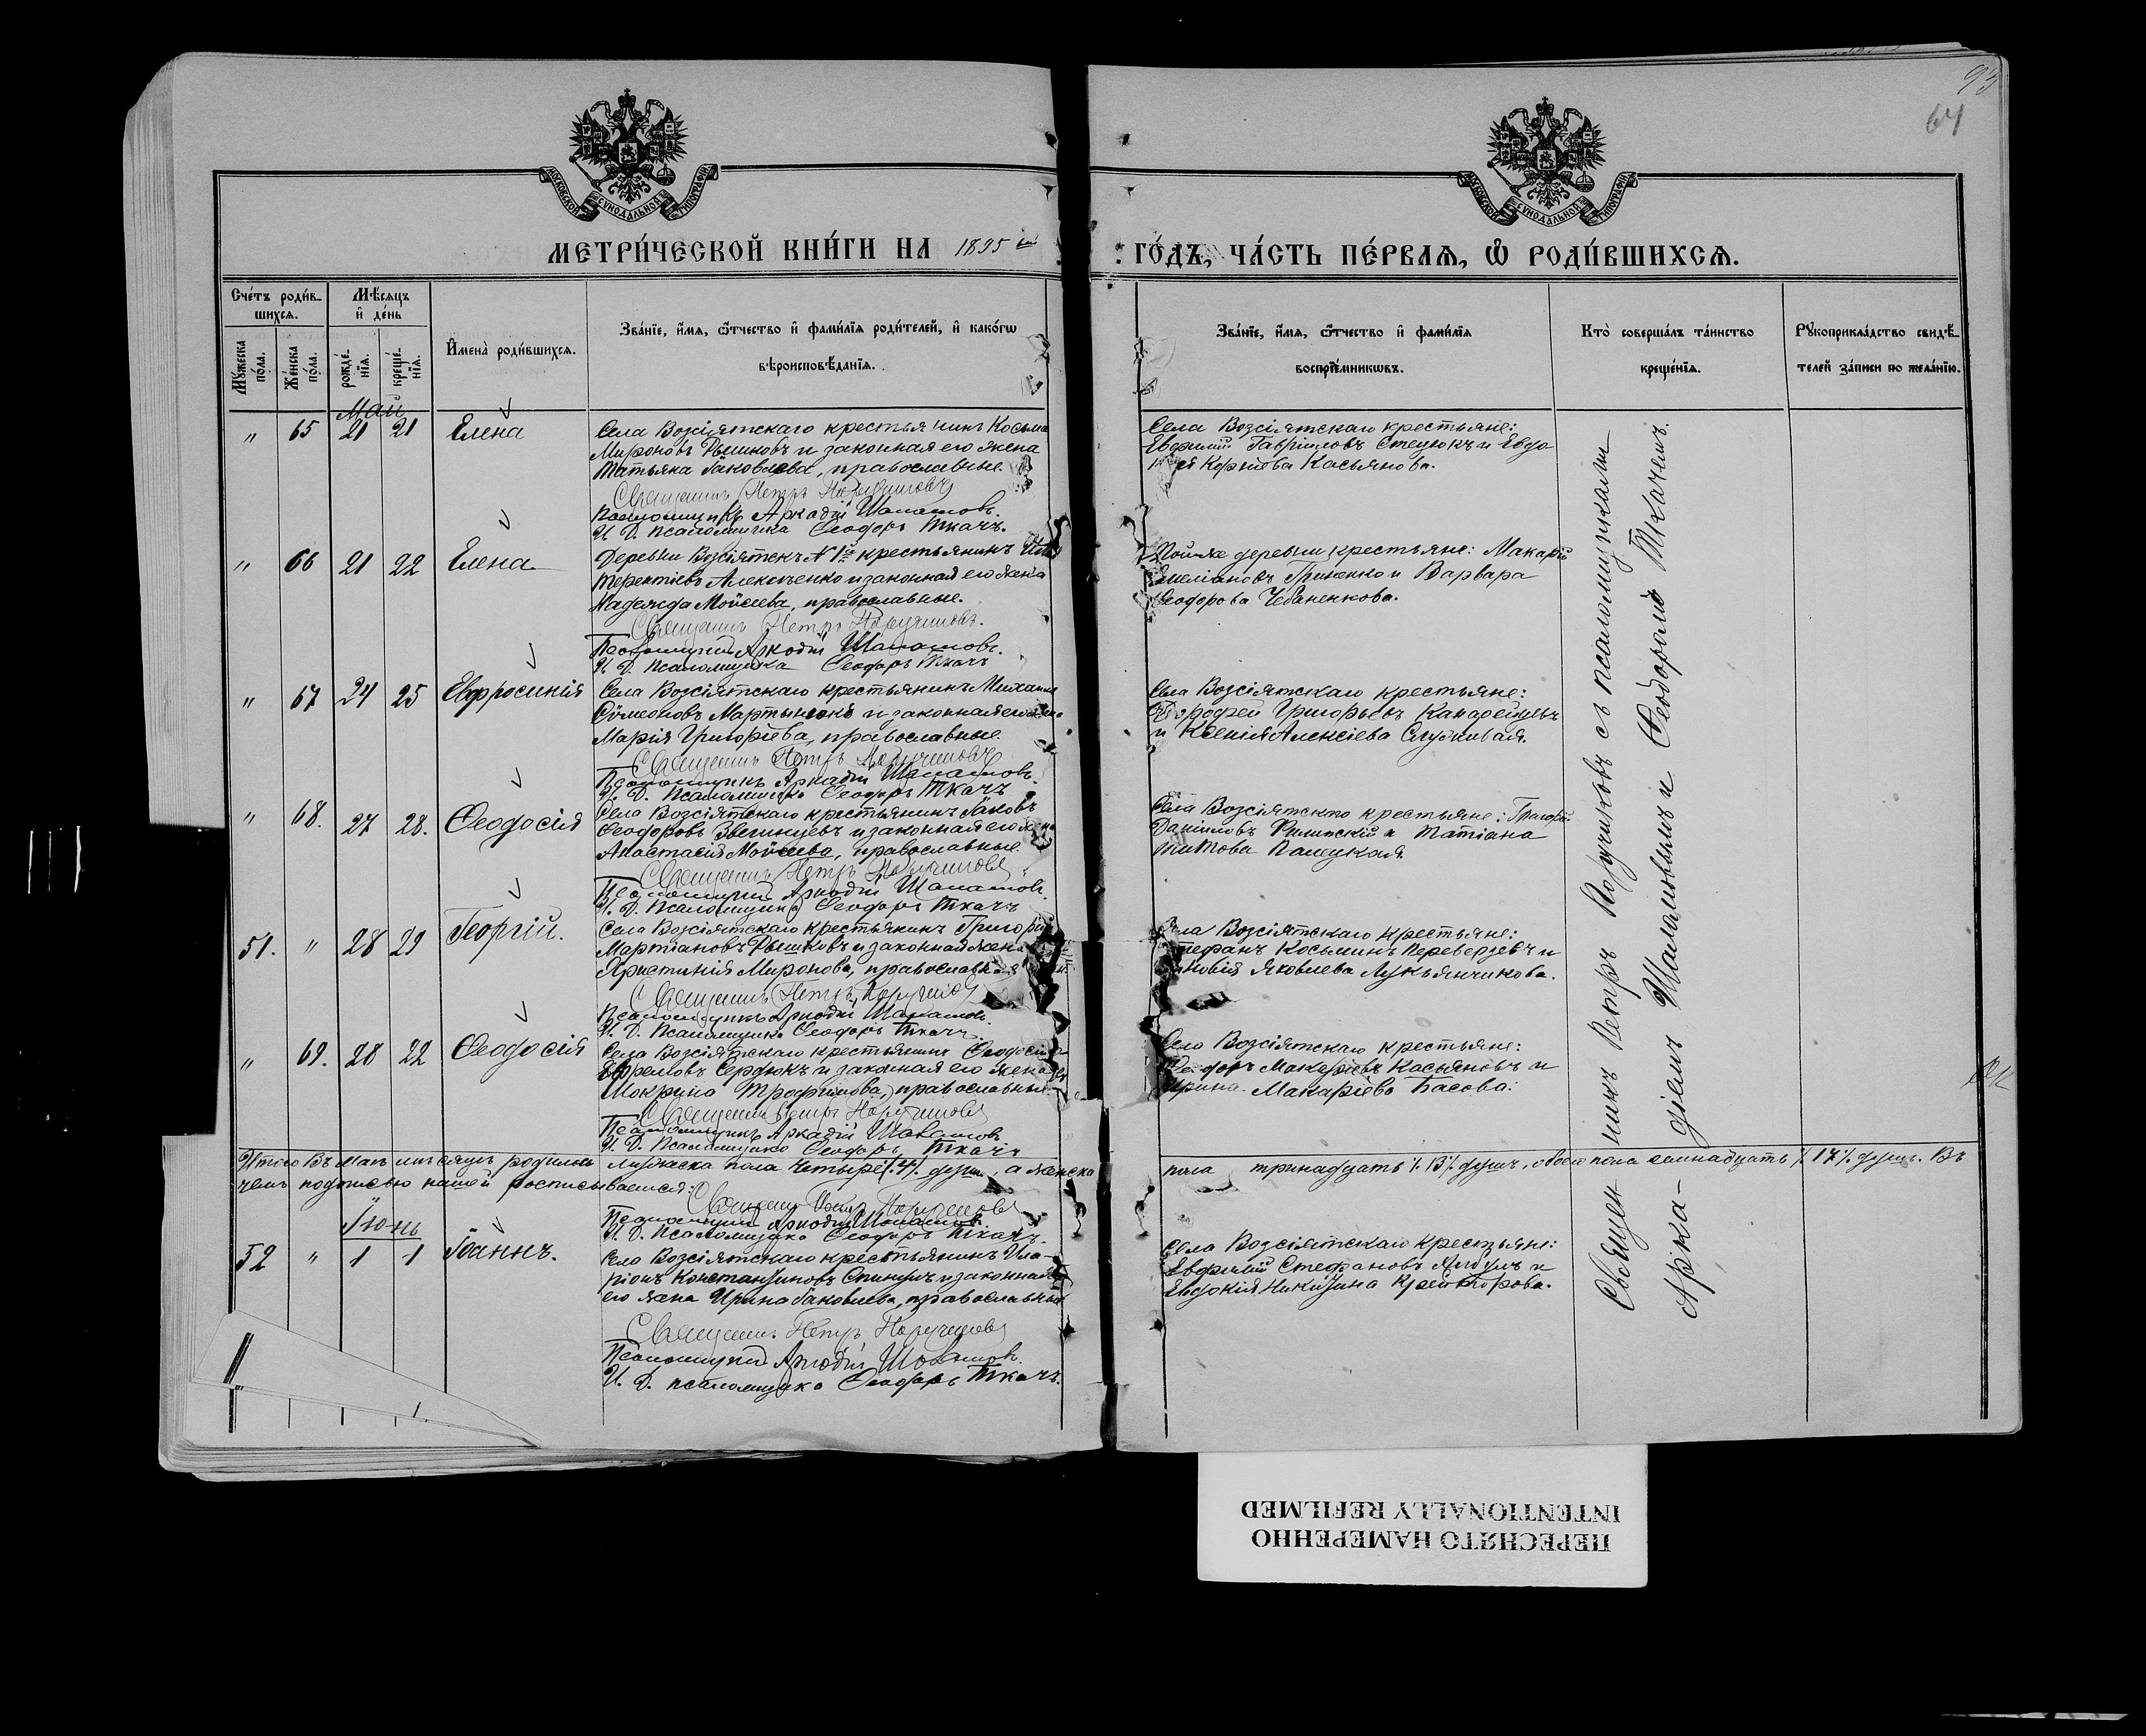 95
64
МОСКОВСКОЙ СѴНОДАЛЬНОЙ ТИПОГРАФІИ
МОСКОВСКОЙ СѴНОДАЛЬНОЙ ТИПОГРАФІИ
МЕТРИ́ЧЕСКОЙ КНИ́ГИ НА 1895
ГО́ДЪ, ЧА́СТЬ ПЕ́РВАЯ, Ѡ РОДИ́ВШИХСЯ.
Сче́тъ роди́в-
шихся.
Мꙋ́жеска по́ла.
Же́нска по́ла.
Мѣ́сяцъ
и де́нь
рожде́нїя.
креще́нїя.
Имена̀ роди́вшихся.
Зва́нїе, и́мя, ѻ҆́тчество и фами́лїя роди́телей, и како́гѡ
вѣроисповѣ́данїя.
Зва́нїе, и́мя, ѻ҆́тчество и фами́лїя
воспрїе́мникѡвъ.
Кто̀ соверша́лъ та́инство
креще́нїя.
Рꙋкоприкла́дство свидѣ́-
телей за́писи по жела́нїю.
Май
" 65 21 21 Елена
Села Возсіятскаго крестьянинъ Косьма
Мироновъ Рышковъ и законная его жена
Татьяна Іаковлева, православные
Священникъ Петръ
Псаломщикъ Аркадій
И. Д. Псаломщика Ѳеодоръ Ткачъ.
Села Возсіятскаго крестьяне:
Евфимій Гавріиловъ Стецюкъ и Евдо
Корніева Касьянова.
" 66 21 22 Елена
Деревни Возсіятскъ № 1й крестьянинъ
Терентіевъ Алексѣенко и законная его жена
Надежда Моисеева, православные.
Священникъ Петръ
Псаломщикъ Аркадій
И. Д. Псаломщика Ѳеодоръ Ткачъ
Той же деревни крестьяне: Макарій
Емеліановъ Гриненко и Варвара
Ѳеодорова Чебаненкова.
" 67 24 25 Евфросинія
Села Возсіятскаго крестьянинъ Михаилъ
Сѵмеоновъ Мартыненко и законная его жена
Марія Григоріева, православные
Священникъ Петръ
Псаломщикъ Аркадій
И. Д. Псаломщика Ѳеодоръ Ткачъ
Села Возсіятскаго крестьяне:
Дороѳей Григорьевъ
и Ксенія Алексіева
" 68. 27 28. Ѳеодосія
Села Возсіятскаго крестьянинъ Іаковъ
Ѳеодоровъ Звегинцевъ и законная его жена
Анастасія Моисеева, православные
Священникъ Петръ
Псаломщикъ Аркадій
И. Д. Псаломщика Ѳеодоръ Ткачъ
Села Возсіятскаго крестьяне: Григорій
Даніиловъ Филипскій и Татіана
Титова Палецкая
51. " 28 29 Георгій.
Села Возсіятскаго крестьянинъ Григорій
Мартіановъ Рышковъ и законная жена
Христинія Миронова, православные
Священникъ Петръ
Псаломщикъ Аркадій
И. Д. Псаломщика Ѳеодоръ Ткачъ
Села Возсіятскаго крестьяне:
Стефанъ Косьминъ Переверзевъ и
Яковлева Лукьянчикова.
" 69. 28 22 Ѳеодосія
Села Возсіятскаго крестьянинъ Ѳеодосій
Ефремовъ Сердюкъ и законная его жена
Мокрина Трофимова, православные
Священникъ Петръ
Псаломщикъ Аркадій
И. Д. Псаломщика Ѳеодоръ Ткачъ
Села Возсіятскаго крестьяне:
Макаріевъ Касьяновъ и
Ирина Макаріева Басова.
Итого въ маѣ мѣсяцѣ родилось мужеска пола четыре /.4/. душъ, а женска
пола тринадцать /.13/. душъ, обоего пола семнадцать /.17/. душъ. Въ
чемъ подписью нашей росписываемся:
Священникъ Петръ
Псаломщикъ Аркадій
И. Д. Псаломщика Ѳеодоръ Ткачъ.
Іюнь
52 " 1 1 Іоаннъ.
Села Возсіятскаго крестьянинъ Ила-
ріонъ Константиновъ и законная
его жена Ирина Іаковлева, православные
Священникъ Петръ
Псаломщикъ Аркадій
И. Д. псаломщика Ѳеодоръ Ткачъ.
Села Возсіятскаго крестьяне:
Евфимій Стефановъ и
Евдокія Никитина
Священникъ Петръ съ псаломщиками
Арка-діемъ и Ѳеодоромъ Ткачемъ.
ПЕРЕСНЯТО НАМЕРЕННО
INTENTIONALLY REFILMED